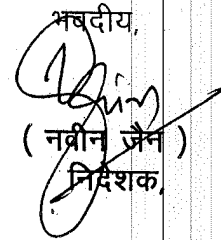 भवदीय,
( नवीन जैन )
निदेशक,